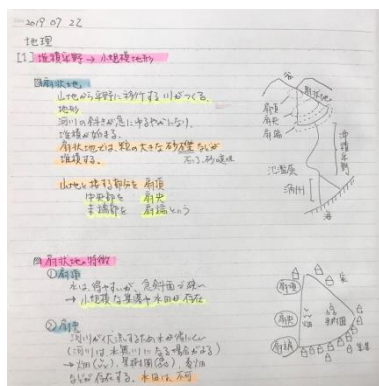 2019 07 22
地理
[1] 堆積平野 → 小規模地形
扇状地
山地から平野に移行する川がつくる、
地形
河川の傾きが急にゆるやかになり、
堆積が始まる。
扇状地では、粒の大きな砂礫などが
堆積する。
山地と接する部分を 扇頂
中央部を 扇央
末端部を 扇端という
扇状地の特徴
①扇頂
水は、得やすいが、急斜面で狭い
→ 小規模な集落や水田が存在
②扇央
河川が伏流するため水が得にくい
(河川は、水無川になる場合がある)
→ 畑 果樹園
などが存在する。水田は、不可
谷
扇状地
扇頂
扇央
扇端
沖積平野
氾濫原
海
扇頂
扇央
扇端
畑
果樹園